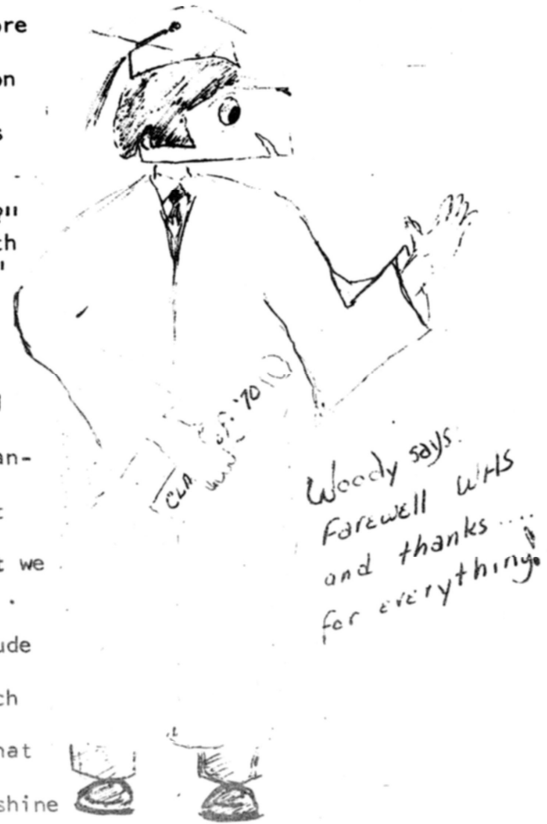 ore
on
s
"
th
"
an-
t
t we
.
ude
ch
hat
shine
CLA
OF '70
Woody says:
Farewell WHS
and thanks....
for everything!